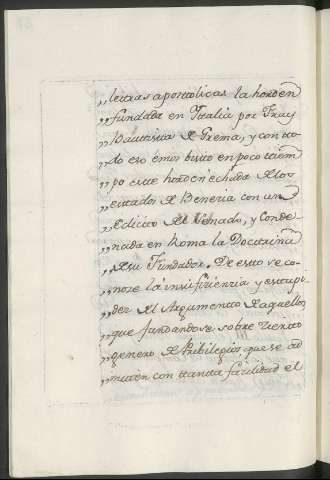 „letras apostolicas la horden
„fundada en Italia por Fray
„Bauttista de Crema, y con tto
„do eso emos bisto en poco ttiem
„po estte horden echada de los
„esttados de Benecia con un
„Edictto del Senado, y conde
„nada en Roma la Docttrina
„de su Fundador, De estto se co
„noze la insufizienzia y esttupi
„dez del Argumentto de aquellos
„que fundandose sobre ziertto
„genero de Pribilegios, que se ad
„miten con ttantta facilidad el